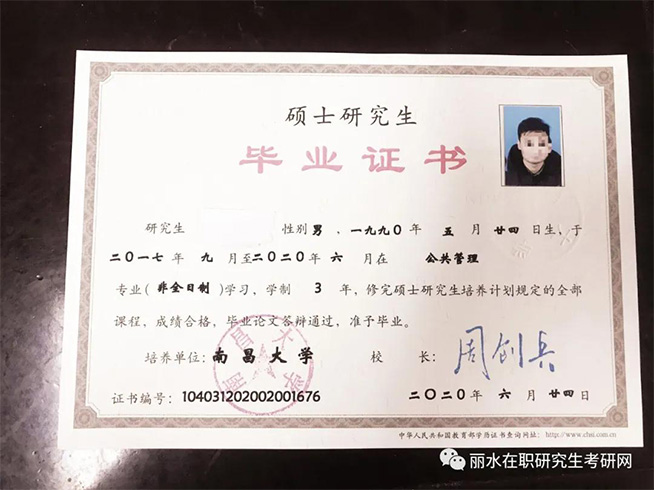 硕士研究生
毕业证书
研究生 性别 男 ，一九九〇 年 五 月 廿四 日生，于
二〇一七 年 九 月至 二〇二〇 年 六 月在 公共管理
专业（非全日制）学习，学制 3 年，修完硕士研究生培养计划规定的全部
课程，成绩合格，毕业论文答辩通过，准予毕业。
培养单位：南昌大学 校 长：周创兵
南昌大学
证书编号：104031202002001676 二〇二〇 年 六 月 廿四 日
中华人民共和国教育部学历证书查询网址：http://www.chsi.com.cn
丽水在职研究生考研网